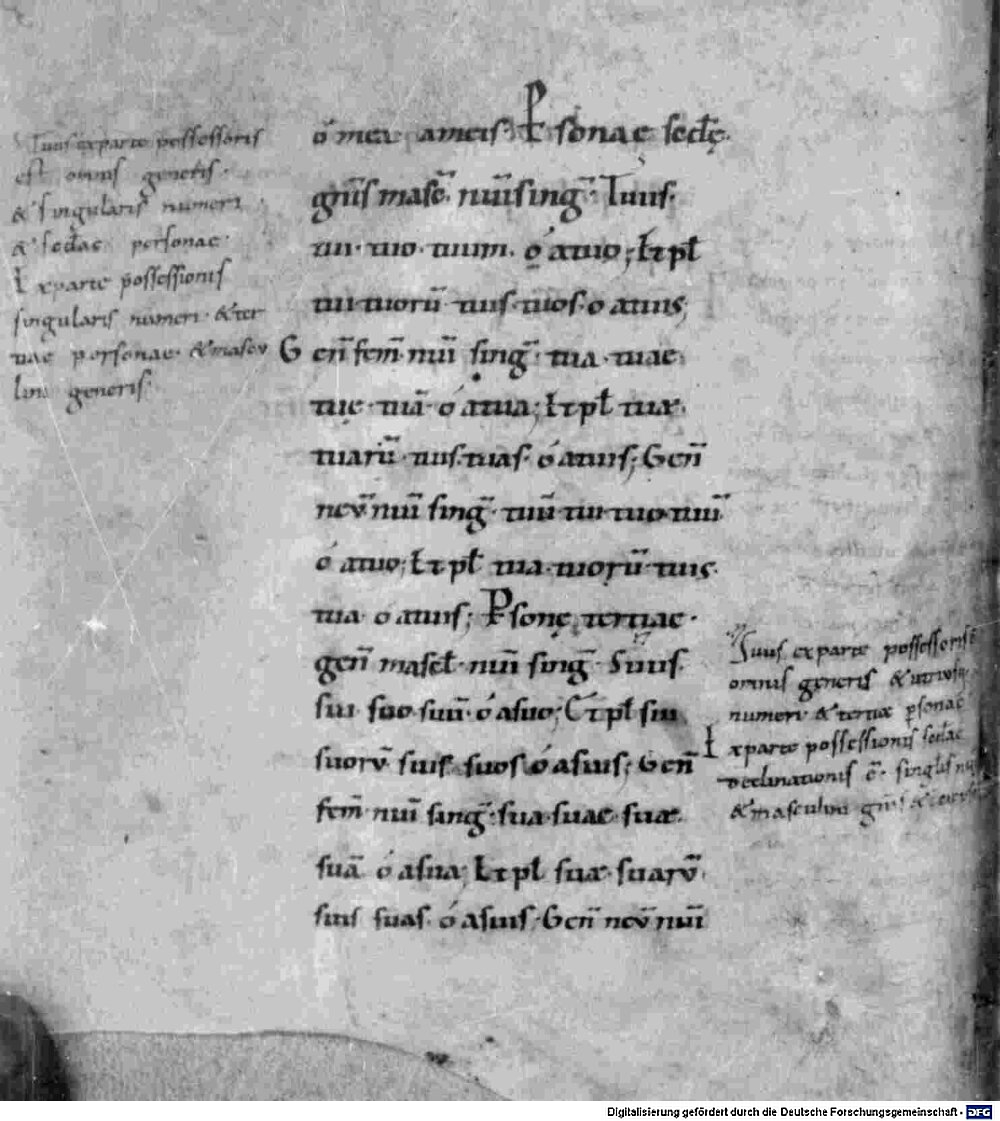 Tuus ex parte possessoris
est omnis generis·
& singularis numeri
& secdae personae·
Ex parte possessionis
singularis numeri· & ter
tiae personae· & mascu
lini generis·
ó meu ameis· Psonae secdę·
gn̄is masc̄· nūi sinḡ· Tuus·
tui· tuo· tuum· ó atuo; Et pł
tui tuorū· tuis· tuos· o atuis;
Gen̄ fem̄· nūi sinḡ· tua· tuae
tuę· tuā· ó atua; Et pł tuæ·
tuarū· tuis· tuas· ó atuis; Gen̄
neū nūi sinḡ· tuū tui tuo tuū
ó atuo; Et pł tua· tuorū· tuis·
tua· o atuis; Psonę tertiae·
gen̄ mascł· nūi sinḡ· Suus
sui suo suū· ó asuo; Et pł sui
suorū suis· suos· ó asuis; Gen̄
fem̄ nūi sinḡ· sua· suae· suæ·
suā ó asua; Et pł suæ· suarū·
suis suas· ó asuis· Gen̄ neū nūi
Suus ex parte possessoris
omnis generis & utriusq
numeri & tertiæ psonae
Ex parte possessionis secdae
declinationis ē· singlis
& masculini gn̄is &
Digitalisierung gefördert durch die Deutsche Forschungsgemeinschaft - DFG